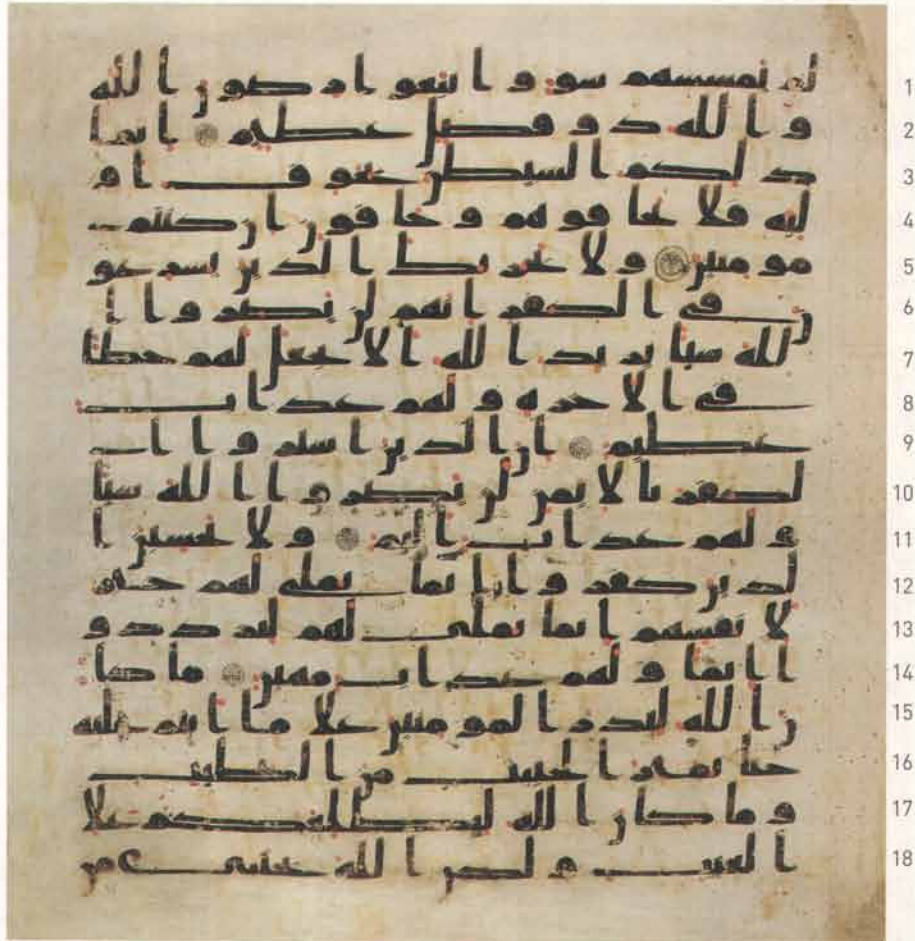 لم يمسسهم سو واتبعوا رضون الله 1
والله ذو فضل عظيم انما 2
ذلكم الشيطن يخوف او 3
ليه فلا تخافوهم وخافون ان كنتم 4
مومنين ولا يحزنك الذين يسرعو 5
ن في الكفر انهم لن يضروا ا 6
لله شيا يريد الله الا يجعل لهم حظا 7
في الاخرة ولهم عذاب 8
عظيم ان الذين اشتروا ا 9
لكفر بالايمن لن يضروا الله شيا 10
ولهم عذاب اليم ولا يحسبن ا 11
لذين كفروا انما نملي لهم خير 12
لانفسهم انما نملي لهم ليزددو 13
ا اثما ولهم عذاب مهين ما كا 14
ن الله ليذر المومنين علا ما انتم عليه 15
حتا يميز الخبيث من الطيب 16
وما كان الله ليطلعكم علا 17
الغيب ولكن الله يجتبي من 18